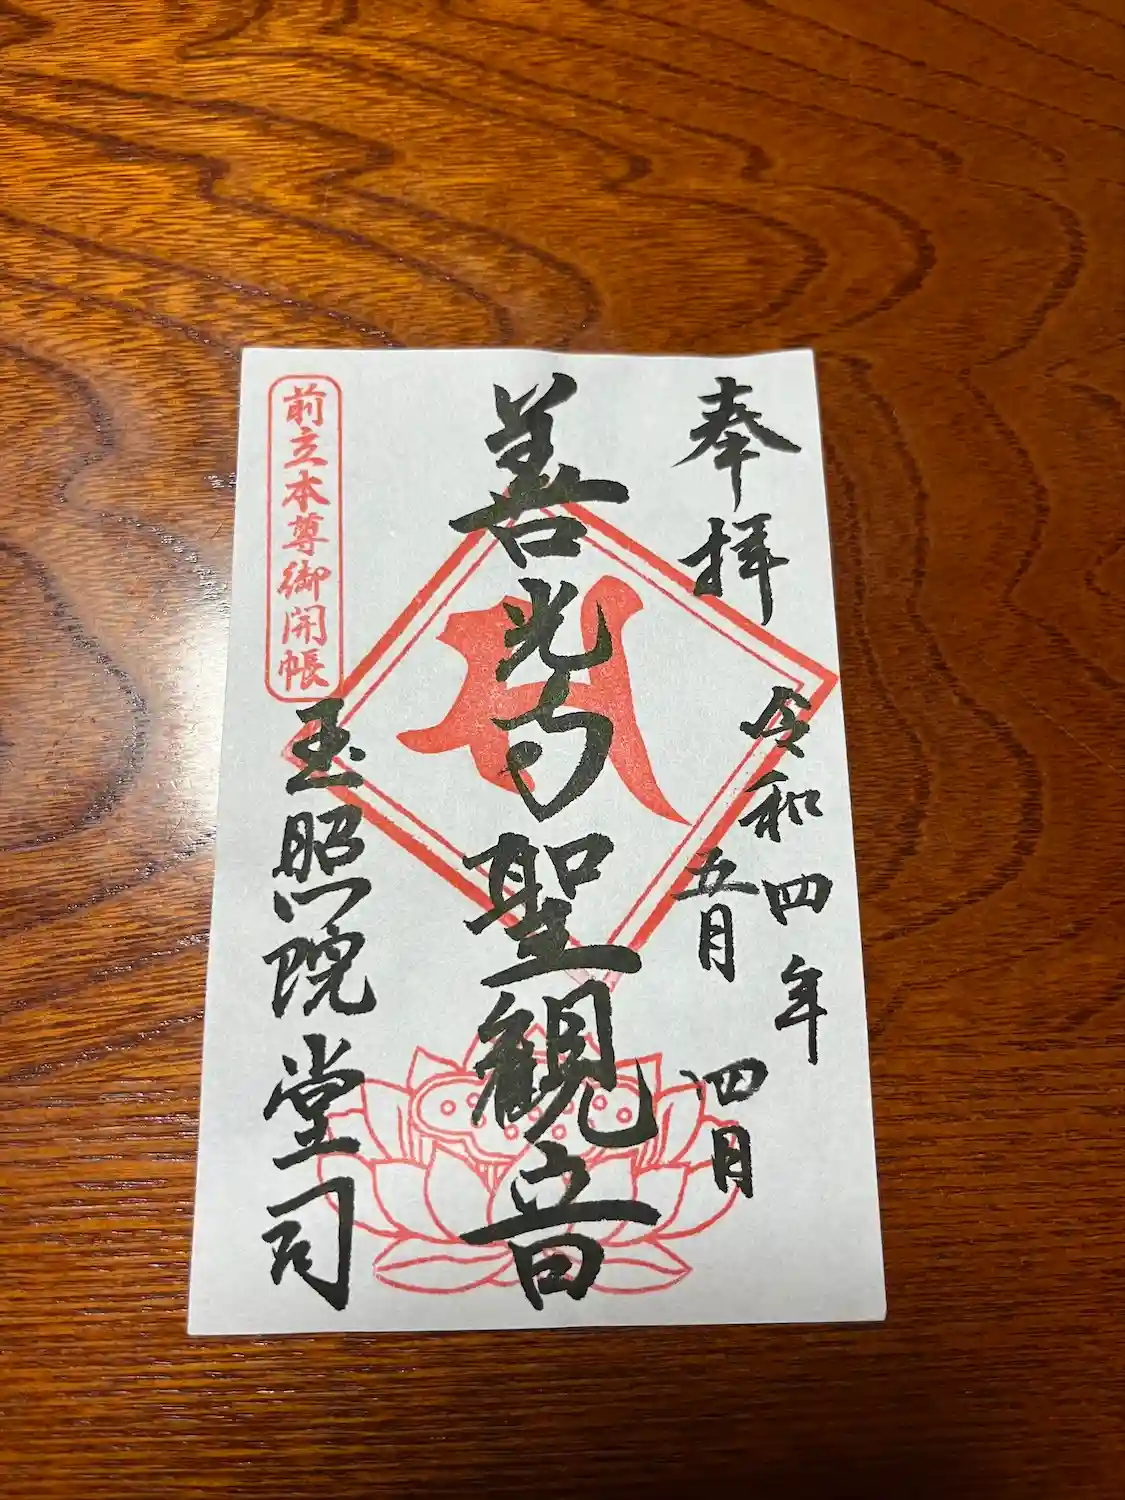 奉拝
令和四年
五月
四月
善光寺聖観音
前立本尊御開帳
玉照院堂司